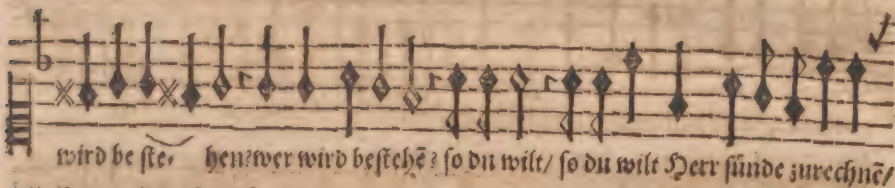 wird be ste⸗ hen? wer wird bestehē? so du wilt/ so du wilt Herr sünde zurechnē/